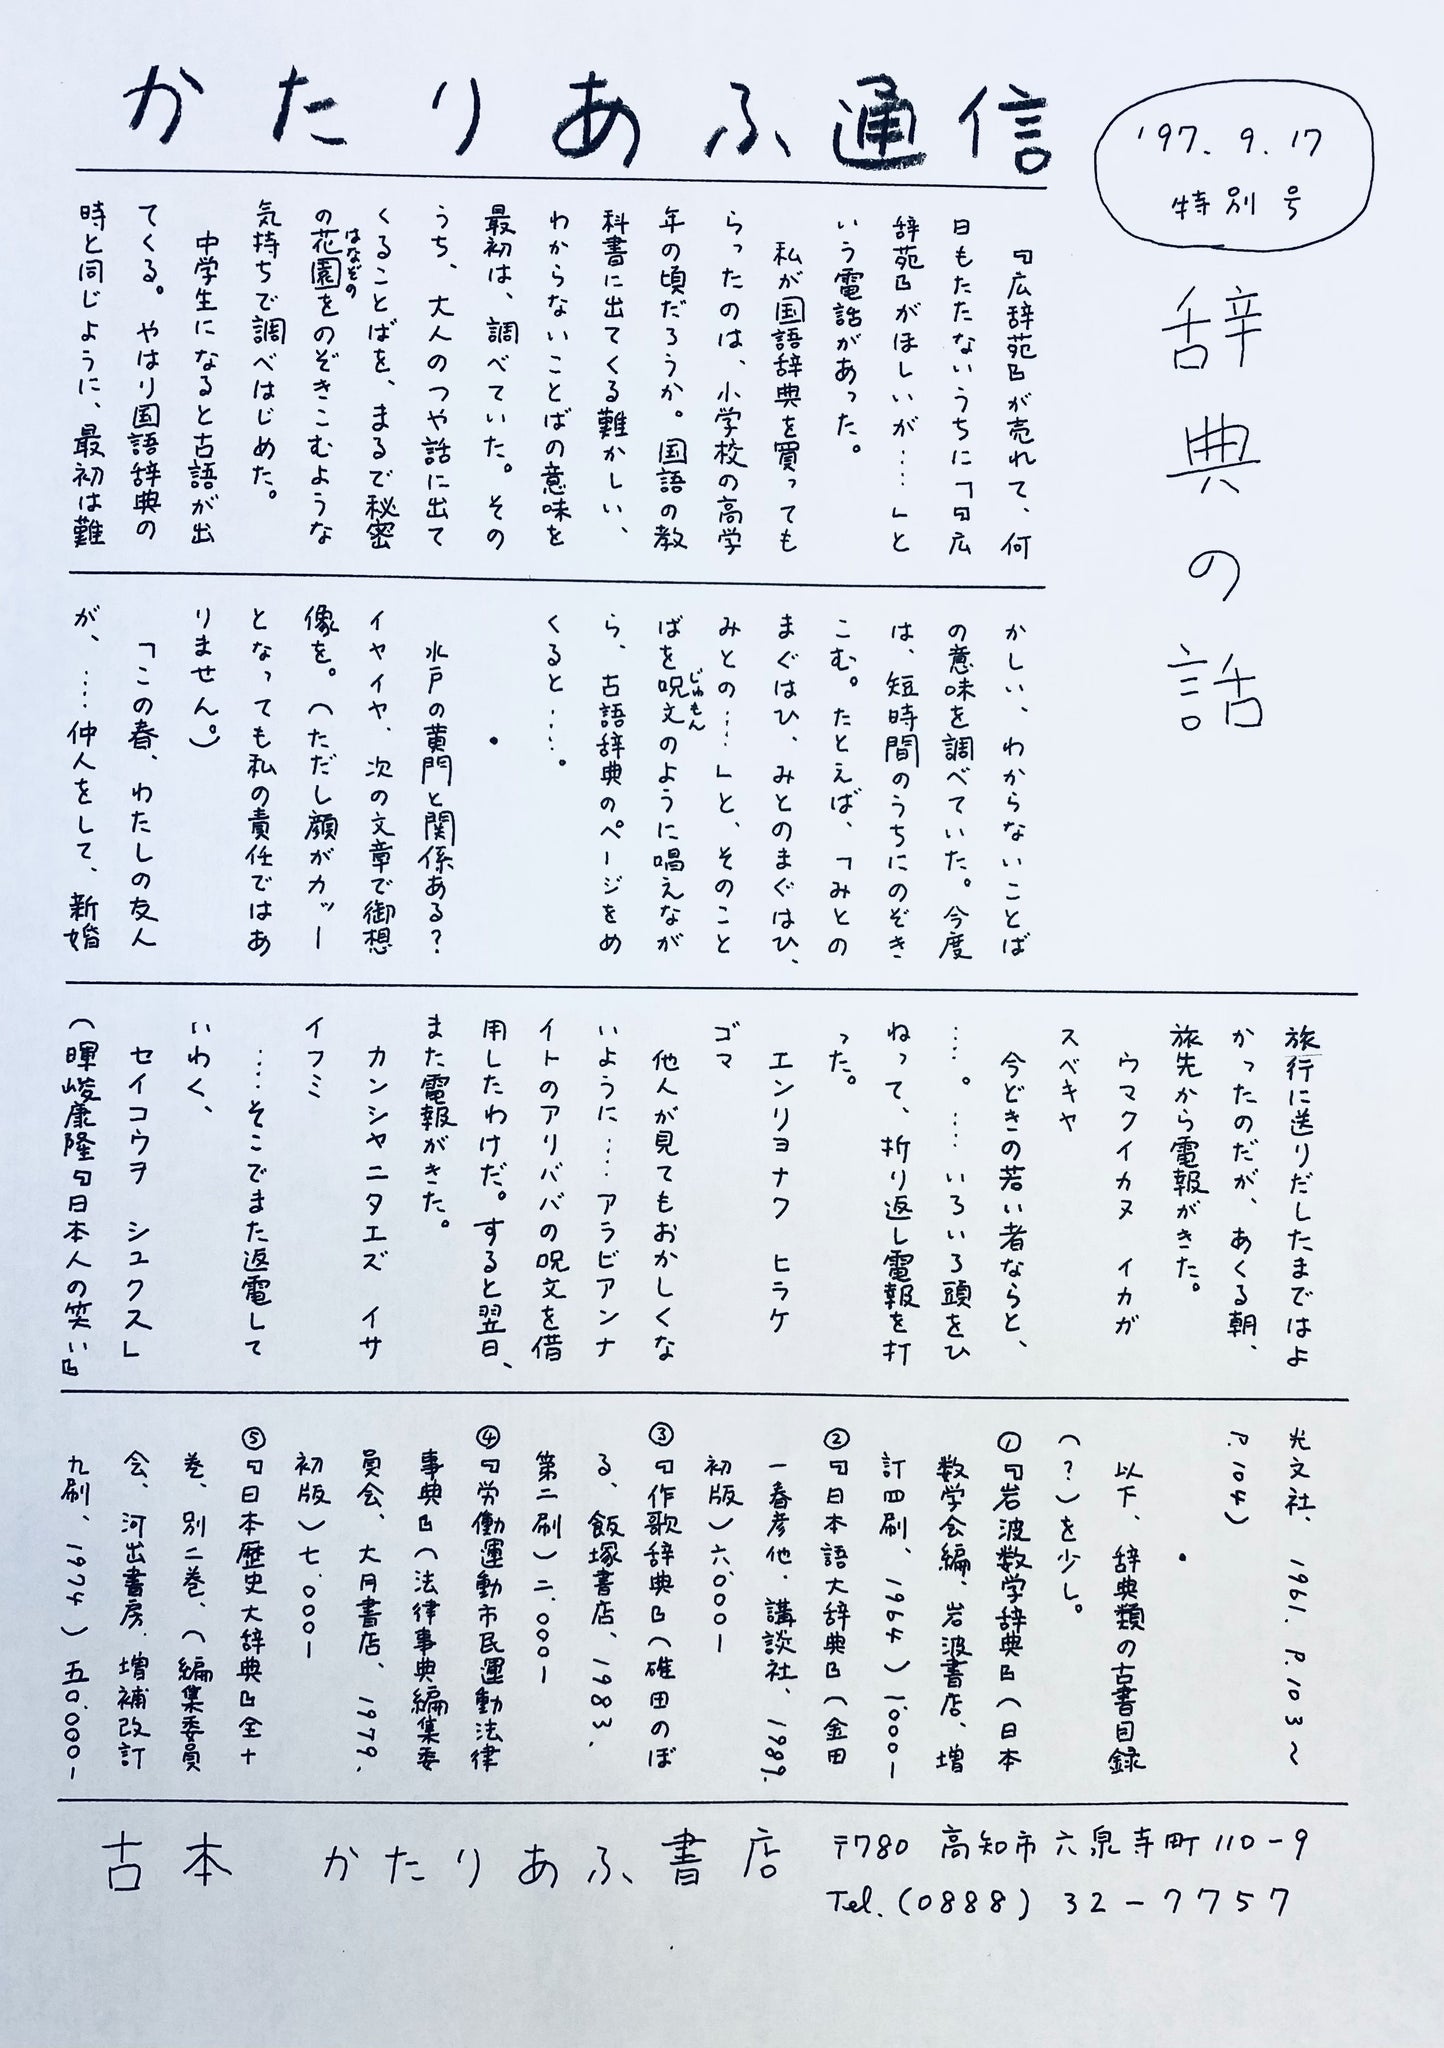 かたりあふ通信
'97.9.17
特別号
辞典の話
『広辞苑』が売れて、何
日もたたないうちに「『広
辞苑』がほしいが‥‥」と
いう電話があった。
私が国語辞典を買っても
らったのは、小学校の高学
年の頃だろうか。国語の教
科書に出てくる難かしい、
わからないことばの意味を
最初は、調べていた。その
うち、大人のつや話に出て
くることばを、まるで秘密
の花園をのぞきこむような
はなぞの
気持ちで調べはじめた。
中学生になると古語が出
てくる。やはり国語辞典の
時と同じように、最初は難
かしい、わからないことば
の意味を調べていた。今度
は、短時間のうちにのぞき
こむ。たとえば、「みとの
まぐはひ、みとのまぐはひ、
みとの‥‥」と、そのこと
ばを呪文のように唱えなが
じゅもん
ら、古語辞典のページをめ
くると‥‥。
・
水戸の黄門と関係ある?
イヤイヤ、次の文章で御想
像を。(ただし顔がカッー
となっても私の責任ではあ
りません。)
「この春、わたしの友人
が、‥‥仲人をして、新婚
旅行に送りだしたまではよ
かったのだが、あくる朝、
旅先から電報がきた。
ウマクイカヌ イカガ
スベキヤ
今どきの若い者ならと、
‥‥。‥‥いろいろ頭をひ
ねって、折り返し電報を打
った。
エンリヨナク ヒラケ
ゴマ
他人が見てもおかしくな
いように‥‥アラビアンナ
イトのアリババの呪文を借
用したわけだ。すると翌日、
また電報がきた。
カンシヤニタエズ イサ
イフミ
‥‥そこでまた返電して
いわく、
セイコウヲ シユクス」
(暉峻康隆『日本人の笑い』
光文社、1961. P.103〜
P.104)
・
以下、辞典類の古書目録
(?)を少し。
①『岩波数学辞典』(日本
数学会編、岩波書店、増
訂四刷、1964)1,000-
②『日本語大辞典』(金田
一春彦他.講談社、1989.
初版)六,000-
③『作歌辞典』(碓田のぼ
る、飯塚書店、1983.
第二刷)二,000-
④『労働運動市民運動法律
事典』(法律事典編集委
員会、大月書店、1979.
初版)七,000-
⑤『日本歴史大辞典』全十
巻、別二巻、(編集委員
会、河出書房.増補改訂
九刷、1974)五0,000-
古本 かたりあふ書店
〒780 高知市六泉寺町110-9
Tel.(0888)32-7757